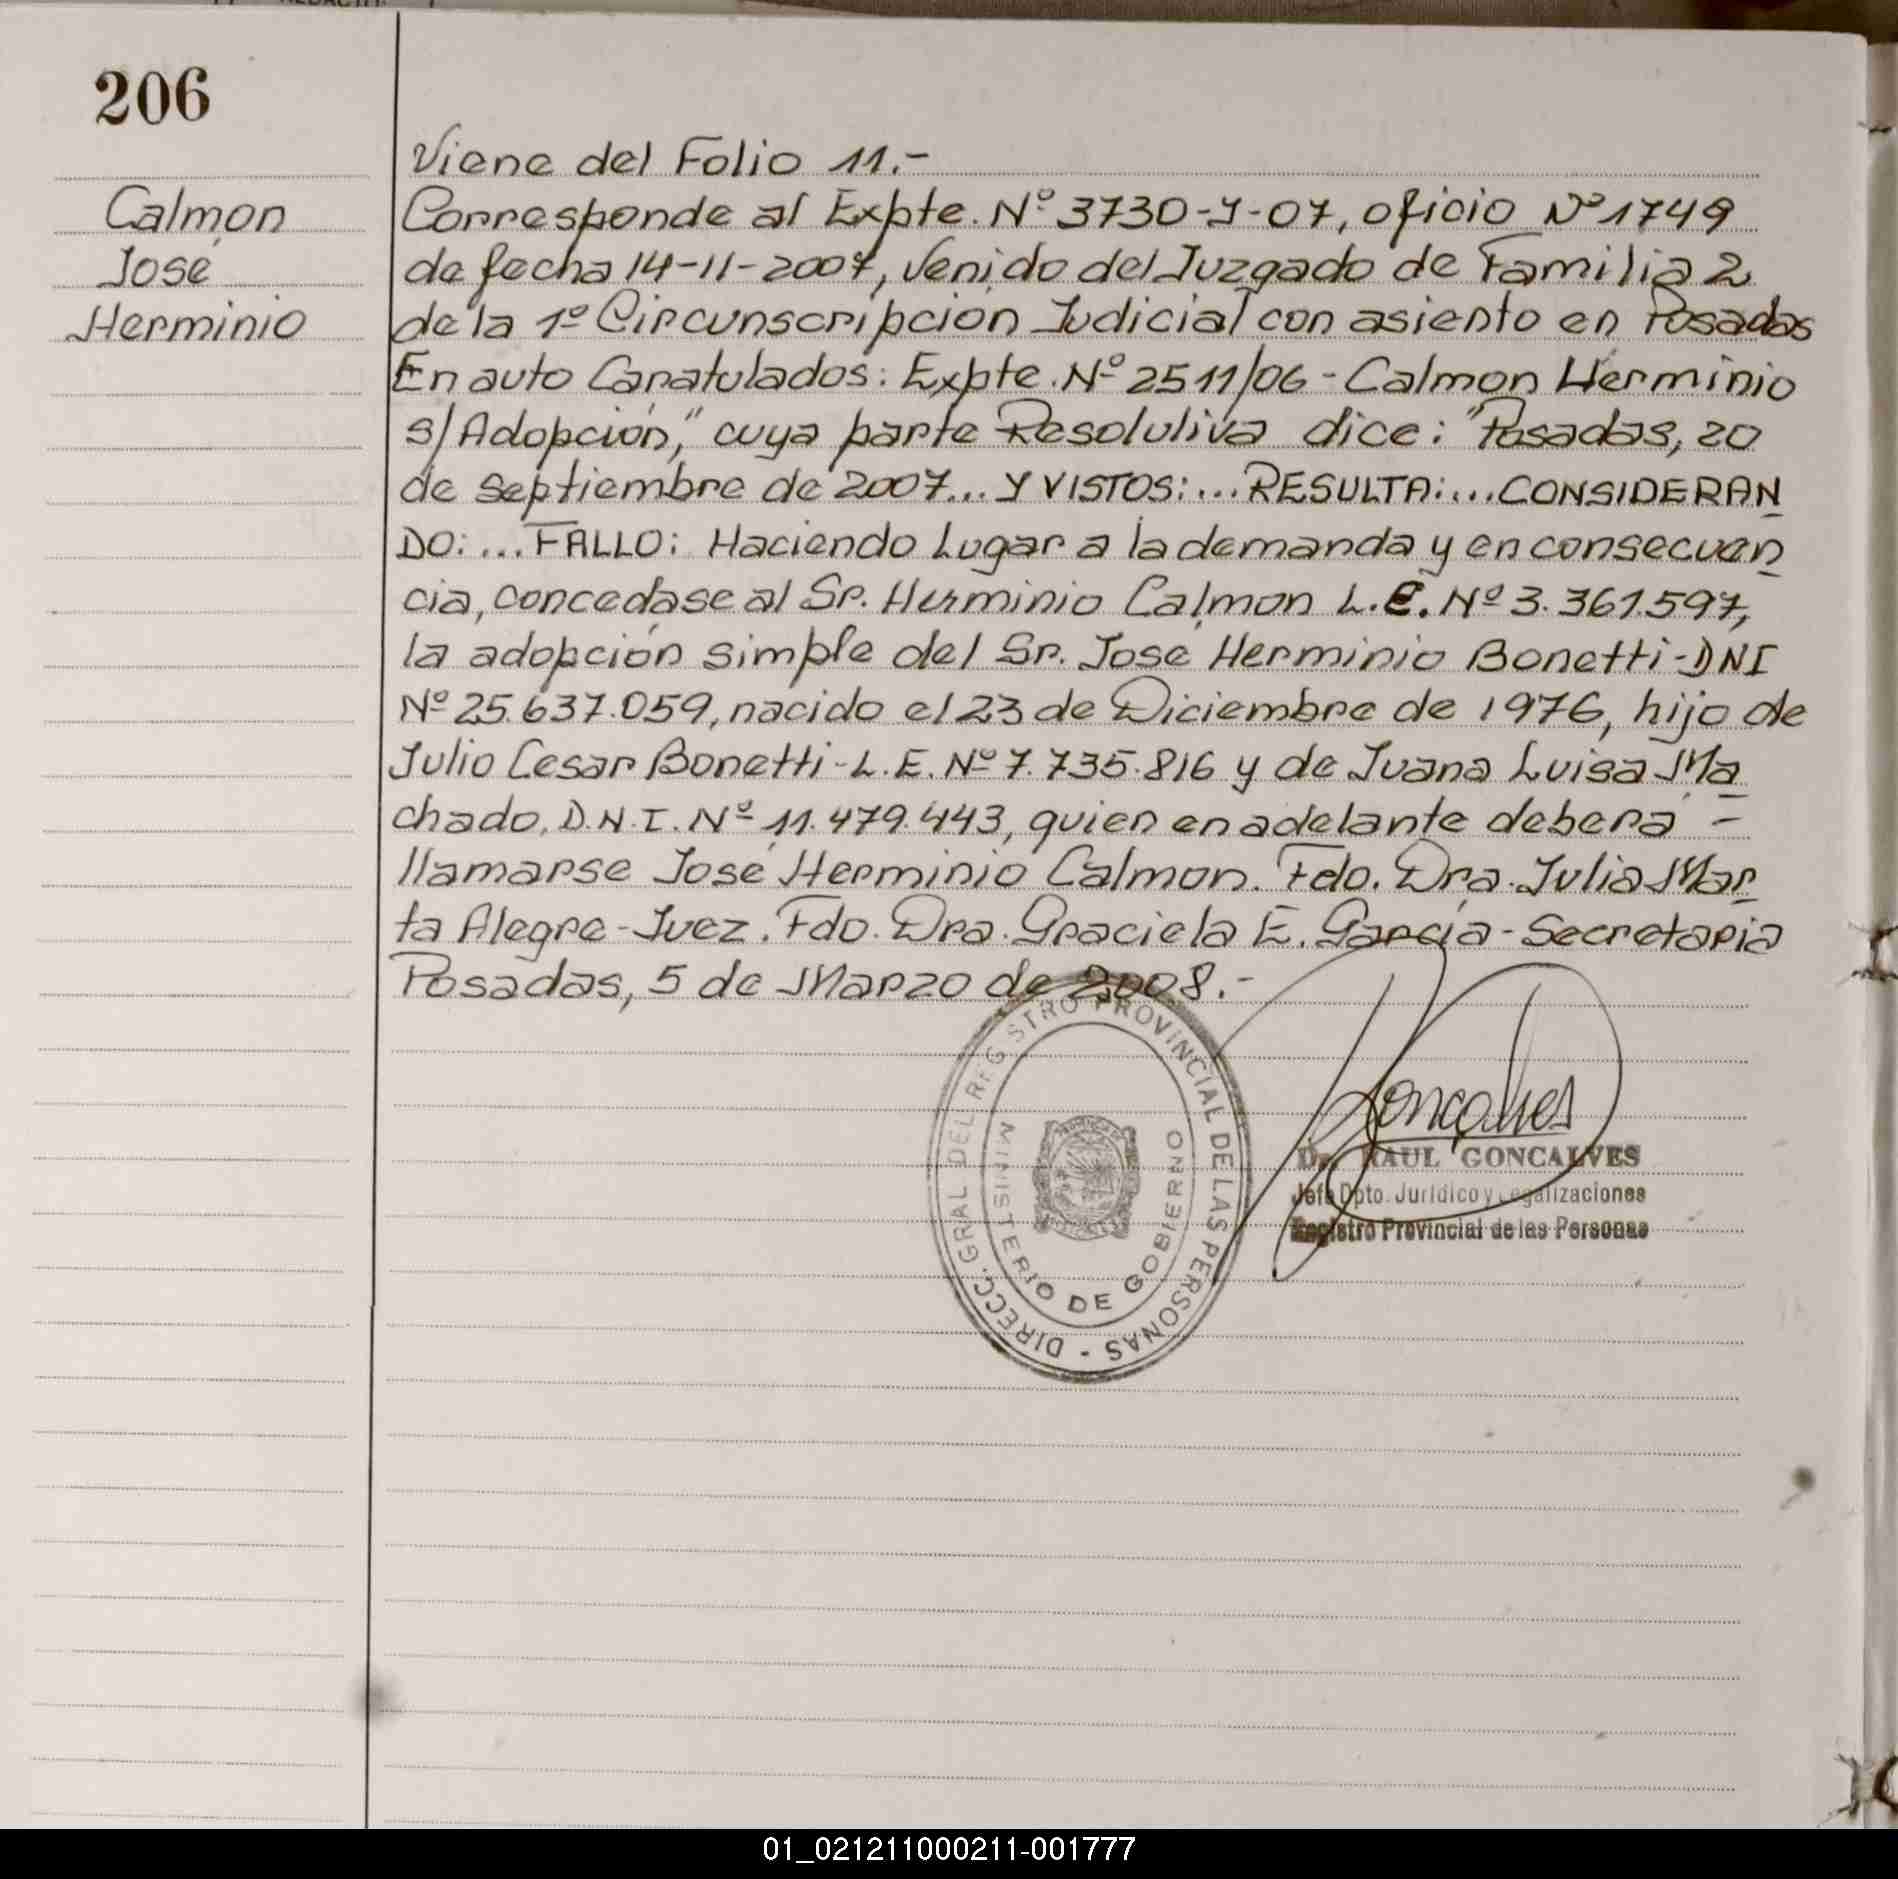 206
Calmon
José
Herminio
Viene del Folio 11.-
Corresponde al Expte. Nº 3730-J-07, oficio Nº 1749
de fecha 14-11-2007, venido del Juzgado de Familia 2
de la 1º Circunscripción Judicial con asiento en Posadas
En auto Caratulados: Expte. Nº 2511/06 - Calmon Herminio
s/Adopción," cuya parte Resolutiva dice: "Posadas, 20
de septiembre de 2007... Y VISTOS:... RESULTA:... CONSIDERAN
DO:... FALLO: Haciendo Lugar a la demanda y en consecuen
cia, concedase al Sr. Herminio Calmon L.E. Nº 3.361.597,
la adopción simple del Sr. José Herminio Bonetti-DNI
Nº 25.637.059, nacido el 23 de Diciembre de 1976, hijo de
Julio Cesar Bonetti-L.E. Nº 7.735.816 y de Juana Luisa Ma
chado, D.N.I. Nº 11.479.443, quien en adelante deberá -
llamarse José Herminio Calmon. Fdo. Dra. Julia Mar
ta Alegre-Juez. Fdo. Dra. Graciela E. García - Secretaria
Posadas, 5 de Marzo de 2008.-
DIRECC. GRAL DEL REGISTRO PROVINCIAL DE LAS PERSONAS -
MINISTERIO DE GOBIERNO
Goncalves
Dr. RAUL GONCALVES
Jefe Dpto. Jurídico y Legalizaciones
Registro Provincial de las Personas
01_021211000211-001777